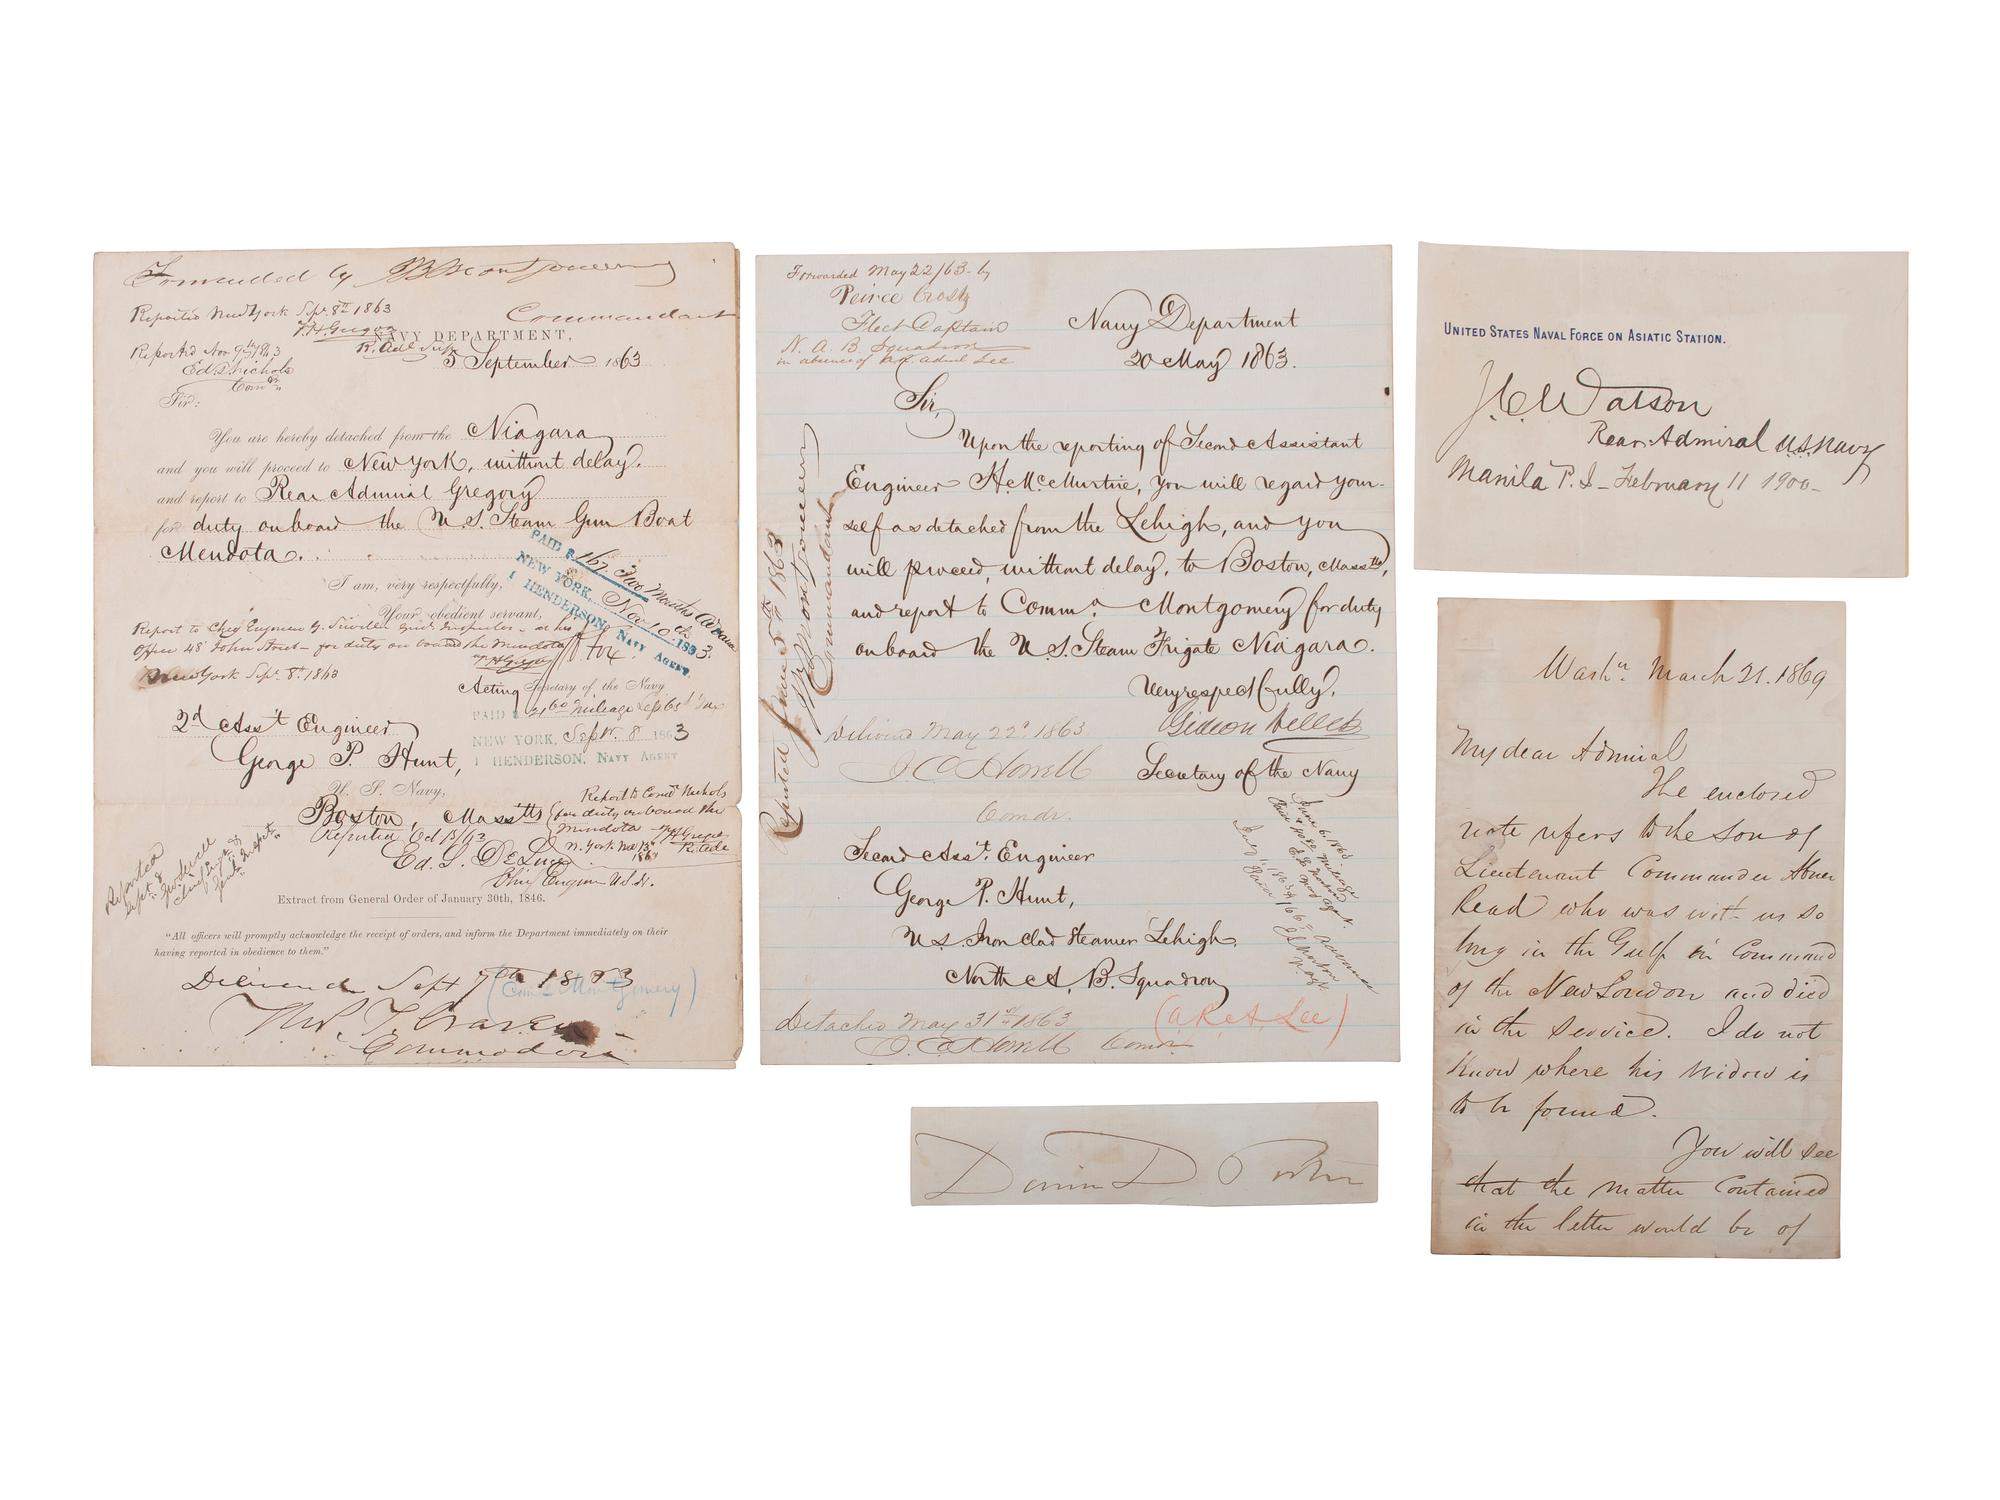 Forwarded by JBMontgomery
Commandant
Reported New York Sept. 8th 1863
F.H. Gregory
R. Adl Supt
NAVY DEPARTMENT,
5 September 1863
Reported Nov 9th 1863
Ed. T. Nichols
Comdr
Sir:
You are hereby detached from the Niagara
and you will proceed to New York, without delay,
and report to Rear Admiral Gregory
for duty on board the U.S. Steam Gun Boat
Mendota.
I am, very respectfully,
Your obedient servant,
PAID $ 167. Two Months Advance
NEW YORK, Nov 10th 1863.
HENDERSON, NAVY AGENT
Report to Chief Engineer
Office 48 John Street - for duty on board the Mendota
New York Sept. 8th 1863
Acting Secretary of the Navy
PAID $
NEW YORK, Sept. 8 1863
HENDERSON, NAVY AGENT
2d Ass't Engineer
George P. Hunt,
U. S. Navy,
Boston, Masstts
Report to Comdr Nichols
for duty on board the
Mendota
Reported
Chief Engineer U.S.N.
Reported
Sept. 8
Extract from General Order of January 30th, 1846.
"All officers will promptly acknowledge the receipt of orders, and inform the Department immediately on their
having reported in obedience to them."
Delivered Sept 7th 1863
(Com. Montgomery)
Thos. T. Craven
Commodore
Forwarded May 22/63 by
Peirce Crosby
Fleet Captain
N. A. B. Squadron
in absence of Act. Adml Lee
Navy Department
20 May 1863.
Sir,
Upon the reporting of Second Assistant
Engineer H. McMurtrie, you will regard your-
self as detached from the Lehigh, and you
will proceed, without delay, to Boston, Masstts,
and report to Commo. Montgomery for duty
on board the U. S. Steam Frigate Niagara.
Very respectfully,
Gideon Welles
Secretary of the Navy
Reported June 5th 1863
JBMontgomery
Commandant
Delivered May 22d 1863
J C Howell
Comdr.
Second Ass't. Engineer
George P. Hunt,
U. S. Iron clad Steamer Lehigh,
North A. B. Squadron
June 6, 1863
Detached May 31st 1863
J. C. Howell Comdr
(A R A Lee)
UNITED STATES NAVAL FORCE ON ASIATIC STATION.
J.C. Watson
Rear Admiral U.S. Navy
Manila P. I - February 11 1900-
David D Porter
Washn. March 21. 1869
My dear Admiral
The enclosed
note refers to the son of
Lieutenant Commander Abner
Read who was with us so
long in the Gulf in Command
of the New London and died
in the service. I do not
know where his widow is
to be found.
You will see
that the matter contained
in the letter would be of